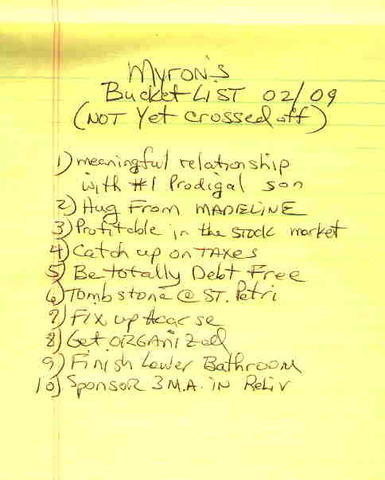 Myron's
Bucket LIST 02/09
(NOT Yet crossed off)
1) meaningful relationship
with #1 Prodigal son
2) Hug From MADELINE
3) Profitable in the stock market
4) Catch up on TAXES
5) Be totally Debt Free
6) Tombstone @ ST. Petri
7) Fix up
8) Get ORGANIZed
9) Finish Lower Bathroom
10) Sponsor 3 M.A. in Reliv